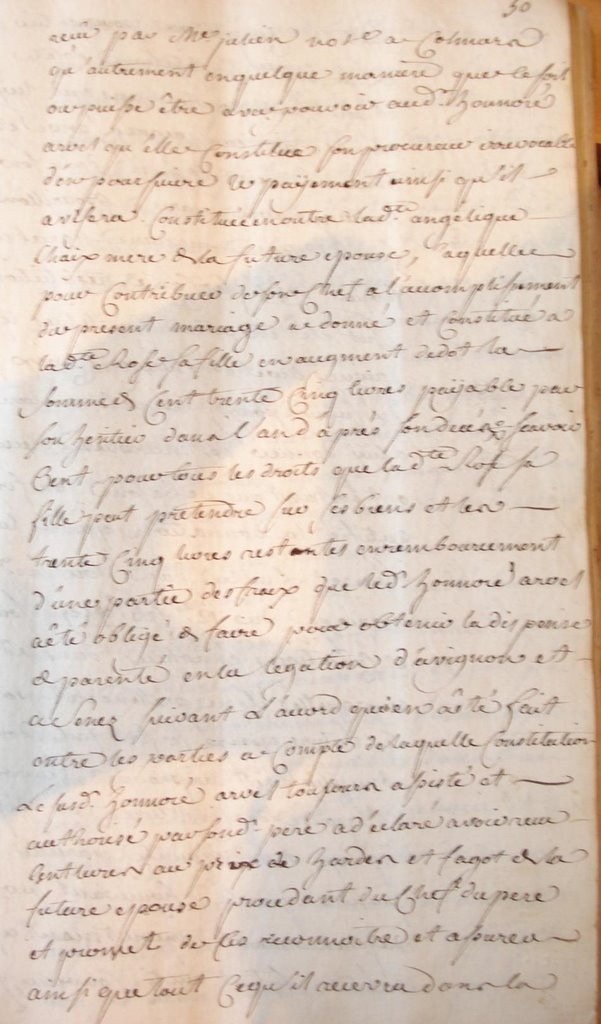 50
receu par Me julien nore a Colmars
qu'autrement en quelque maniere que ce soit
ou puisse être avec pouvoir aud. honnoré
arvel qu'elle Constitue son procureur irrevocable
d'en poursuivre le payement ainsi qu'il
avisera. Constituée en outre lad.te angélique
Chaix mere de la future epouse, laquelle
pour Contribuer de son Chef a l'accomplissement
du present mariage a donné et Constitué a
lad.te Rose sa fille en augment de dot la
somme de Cent trente Cinq livres payable par
son heritier dans l'an d'après son decés, scavoir
Cent pour tous les droits que lad.te Rose sa
fille peut pretendre sur ses biens et les
trente Cinq livres restantes en remboursement
d'une partie des fraix que led. honnoré arvel
a été obligé de faire pour obtenir la dispense
de parenté en la legation d'avignon et
a Senez suivant L'acord qui en a été fait
entre les parties a Compte de laquelle Constitution
Le susd. honnoré arvel toujours assisté et
authorisé par sond. pere a déclaré avoir receu
Cent livres au prix de hardes et fagot de la
future epouse procedant du Chef du pere
et promet de les reconnoitre et assurer
ainsi que tout Ce qu'il recevra dans la